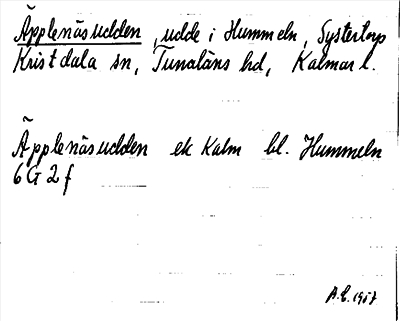 Äpplenäsudden, udde i Hummeln, Systertorp
Kristdala sn, Tunaläns hd, Kalmar l.
Äpplenäsudden ek Kalm bl. Hummeln
6G2f
A.C. 1957